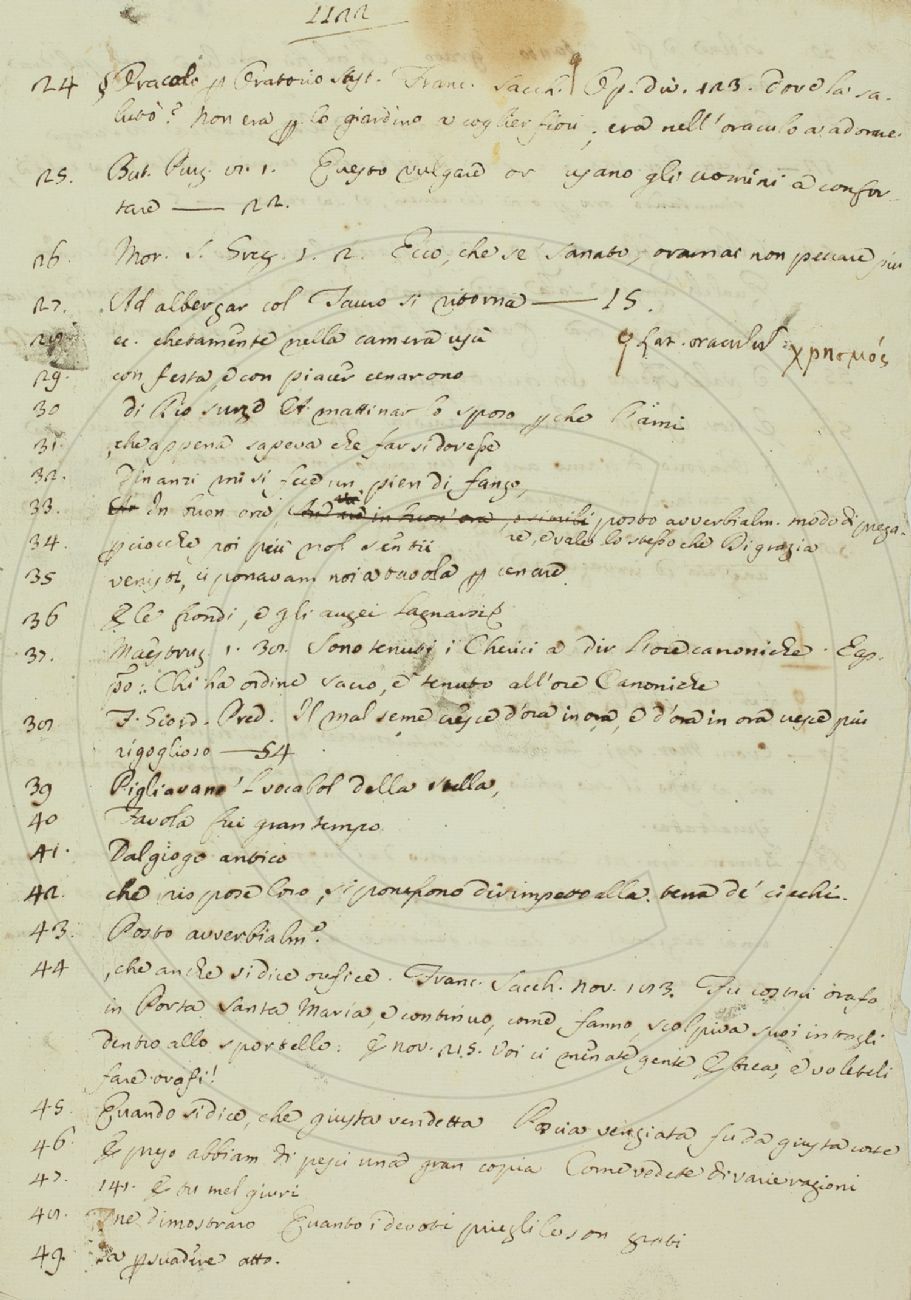 1122
24 § Oracolo p Oratorio Sust. Franc. Sacch. Op. div. 123. Dove la sa-
lutò? Non era p lo giardino a coglier fiori, era nell'oraculo a adorare
25. But. Purg. 1. Questo vulgare or usano gli uomini a confor-
tare — 22.
26. Mor. S. Greg. 1. 2. Ecco, che se' sanato, oramai non peccare più
27. Ad albergar col Tauro si ritorna — 15.
28. ec. chetamente nella camera
§ Lat. oraculū χρησμός
29. con festa, e con piacer cenarono
30 di Dio surge A mattinar lo sposo p che l'ami
31. , che appena sapeva che far si dovesse
32. Dinanzi mi si fece un pien di fango,
33. In buon ora, posto avverbialm. modo di prega-
re, e vale lo stesso che Di grazia
34. p ciocchè poi più nol sentii
35 ci ponavam noi a tavola p cenare
36 E le frondi, e gli augei lagnarsi
37. Maestruz. 1. 30. Sono tenuti i Cherici a dir l'ore canoniche. Eap-
po: Chi ha ordine sacro, è tenuto all'ore Canoniche
38. F. Giord. Pred. Il mal seme cresce d'ora in ora, e d'ora in ora cresce più
rigoglioso — 54
39 Pigliavano 'l vocabol della stella,
40 Favola fui gran tempo
41. Dal giogo antico
42. che pose loro, si ponessono dirimpetto alla de' ciechi.
43. Posto avverbialm.e
44 , che anche si dice orefice. Franc. Sacch. nov. 183. Fu costui orafo
in Porta Santa Maria, e continuo, come fanno, scolpiva suoi intagli
dentro allo sportello: E nov. 215. Voi ci menate gente e voleteli
fare orafi!
45. Quando si dice, che giusta vendetta Poscia vengiata fu da giusta corte
46. E abbiam di pesci una gran copia Come vedete di varie ragioni
47. 141. E tu mel giuri
48. Ne dimostraro Quanto i devoti prieghi le son grati
49. a psuadere atto.